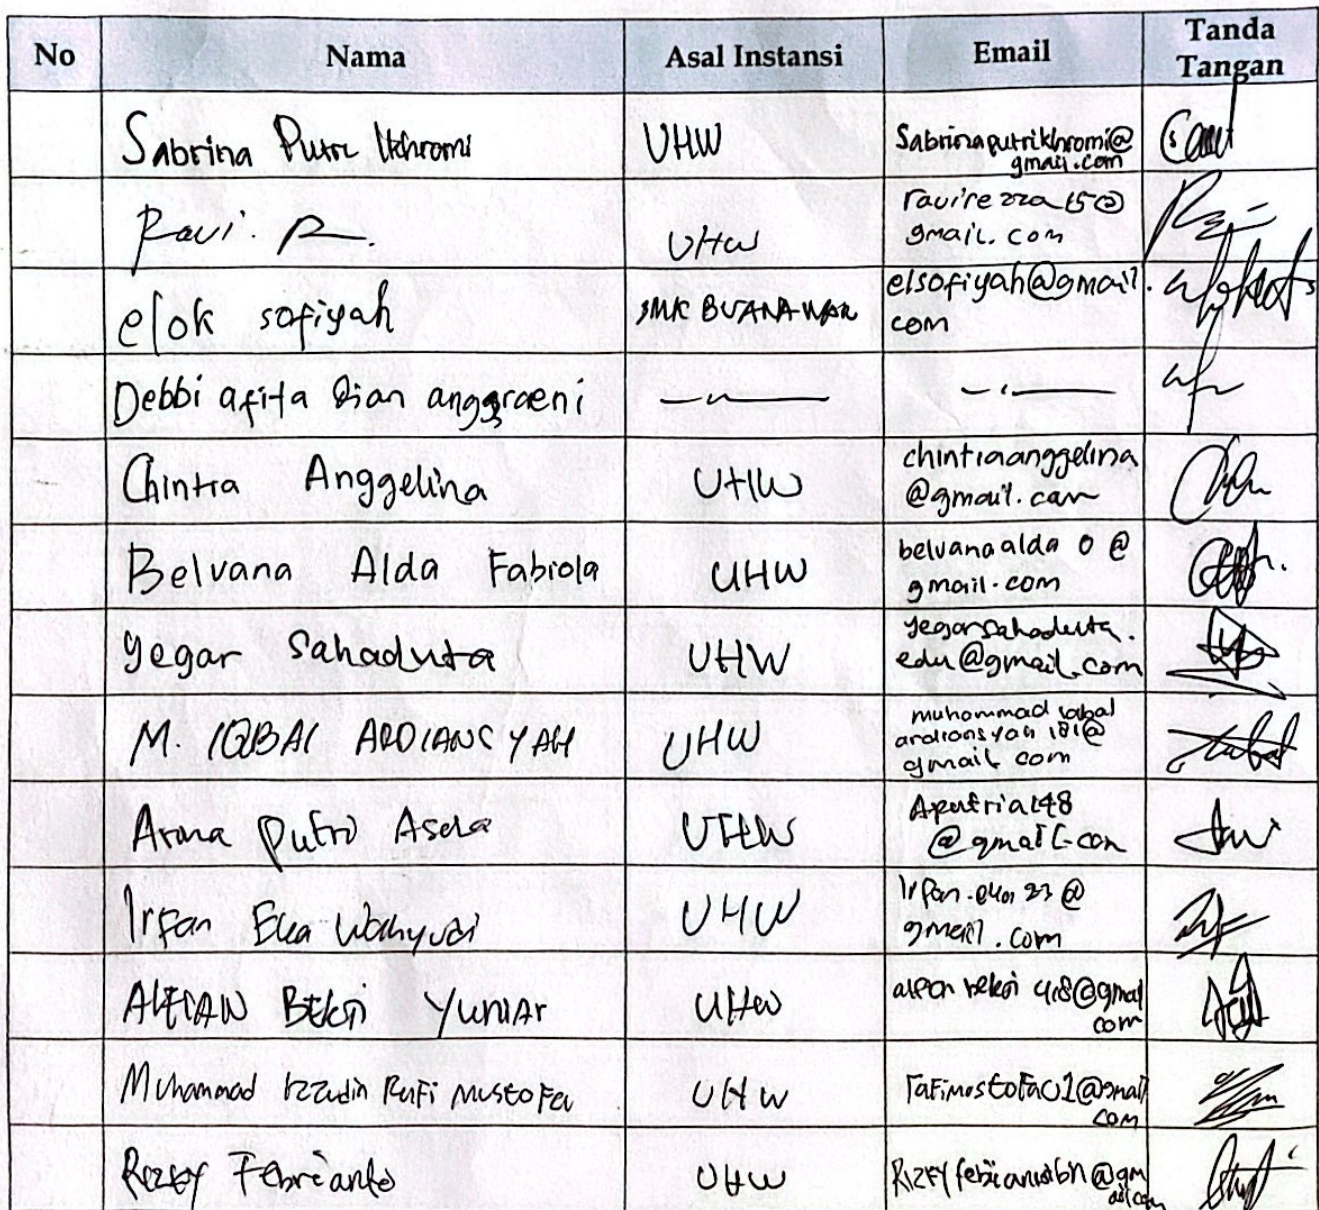 No Nama Asal Instansi Email Tanda Tangan
Sabrina Putri Ikhromi UHW Sabrinaputrikhromi@
gmail.com
Ravi. R. UHW ravirezza15@
gmail.com
elok sofiyah SMK BUANA WAR elsofiyah@gmail.
com
Debbi afita dian anggraeni
Chintia Anggelina UHW chintiaanggelina
@gmail.com
Belvana Alda Fabiola UHW belvanaalda 0 @
gmail.com
Yegar Sahaduta UHW yegarsahaduta.
edu@gmail.com
M. IQBAL ARDIANSYAH UHW muhammad iqbal
ardiansyah 181@
gmail com
Putri UHW Aputria148
@gmail.com
Irfan Eka Wahyudi UHW Irfan.eka23@
gmail.com
ALFIAN Bekti YUNIAr UHW
com
Muhammad Izzudin Rafi Mustofa UHW rafimustofa01@gmail
com
Rizky Febrianto UHW